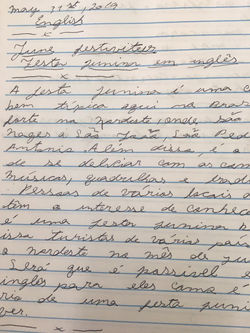 may 31st, 2019
English
June festivities
Festa junina em inglês
A festa junina é uma c
bem típica aqui no Bras
forte no nordeste, onde são
nages a São João, São Ped
Antonio. Além disso, é o
de se deliciar com as com
músicas, quadrilhas e trad
Pessoas de vários locais d
têm o interesse de conhec
é uma festa junina b
isso turistas de várias par
o nordeste no mês de ju
Será que é possível e
inglês para eles como é
ria de uma festa juni
ber.